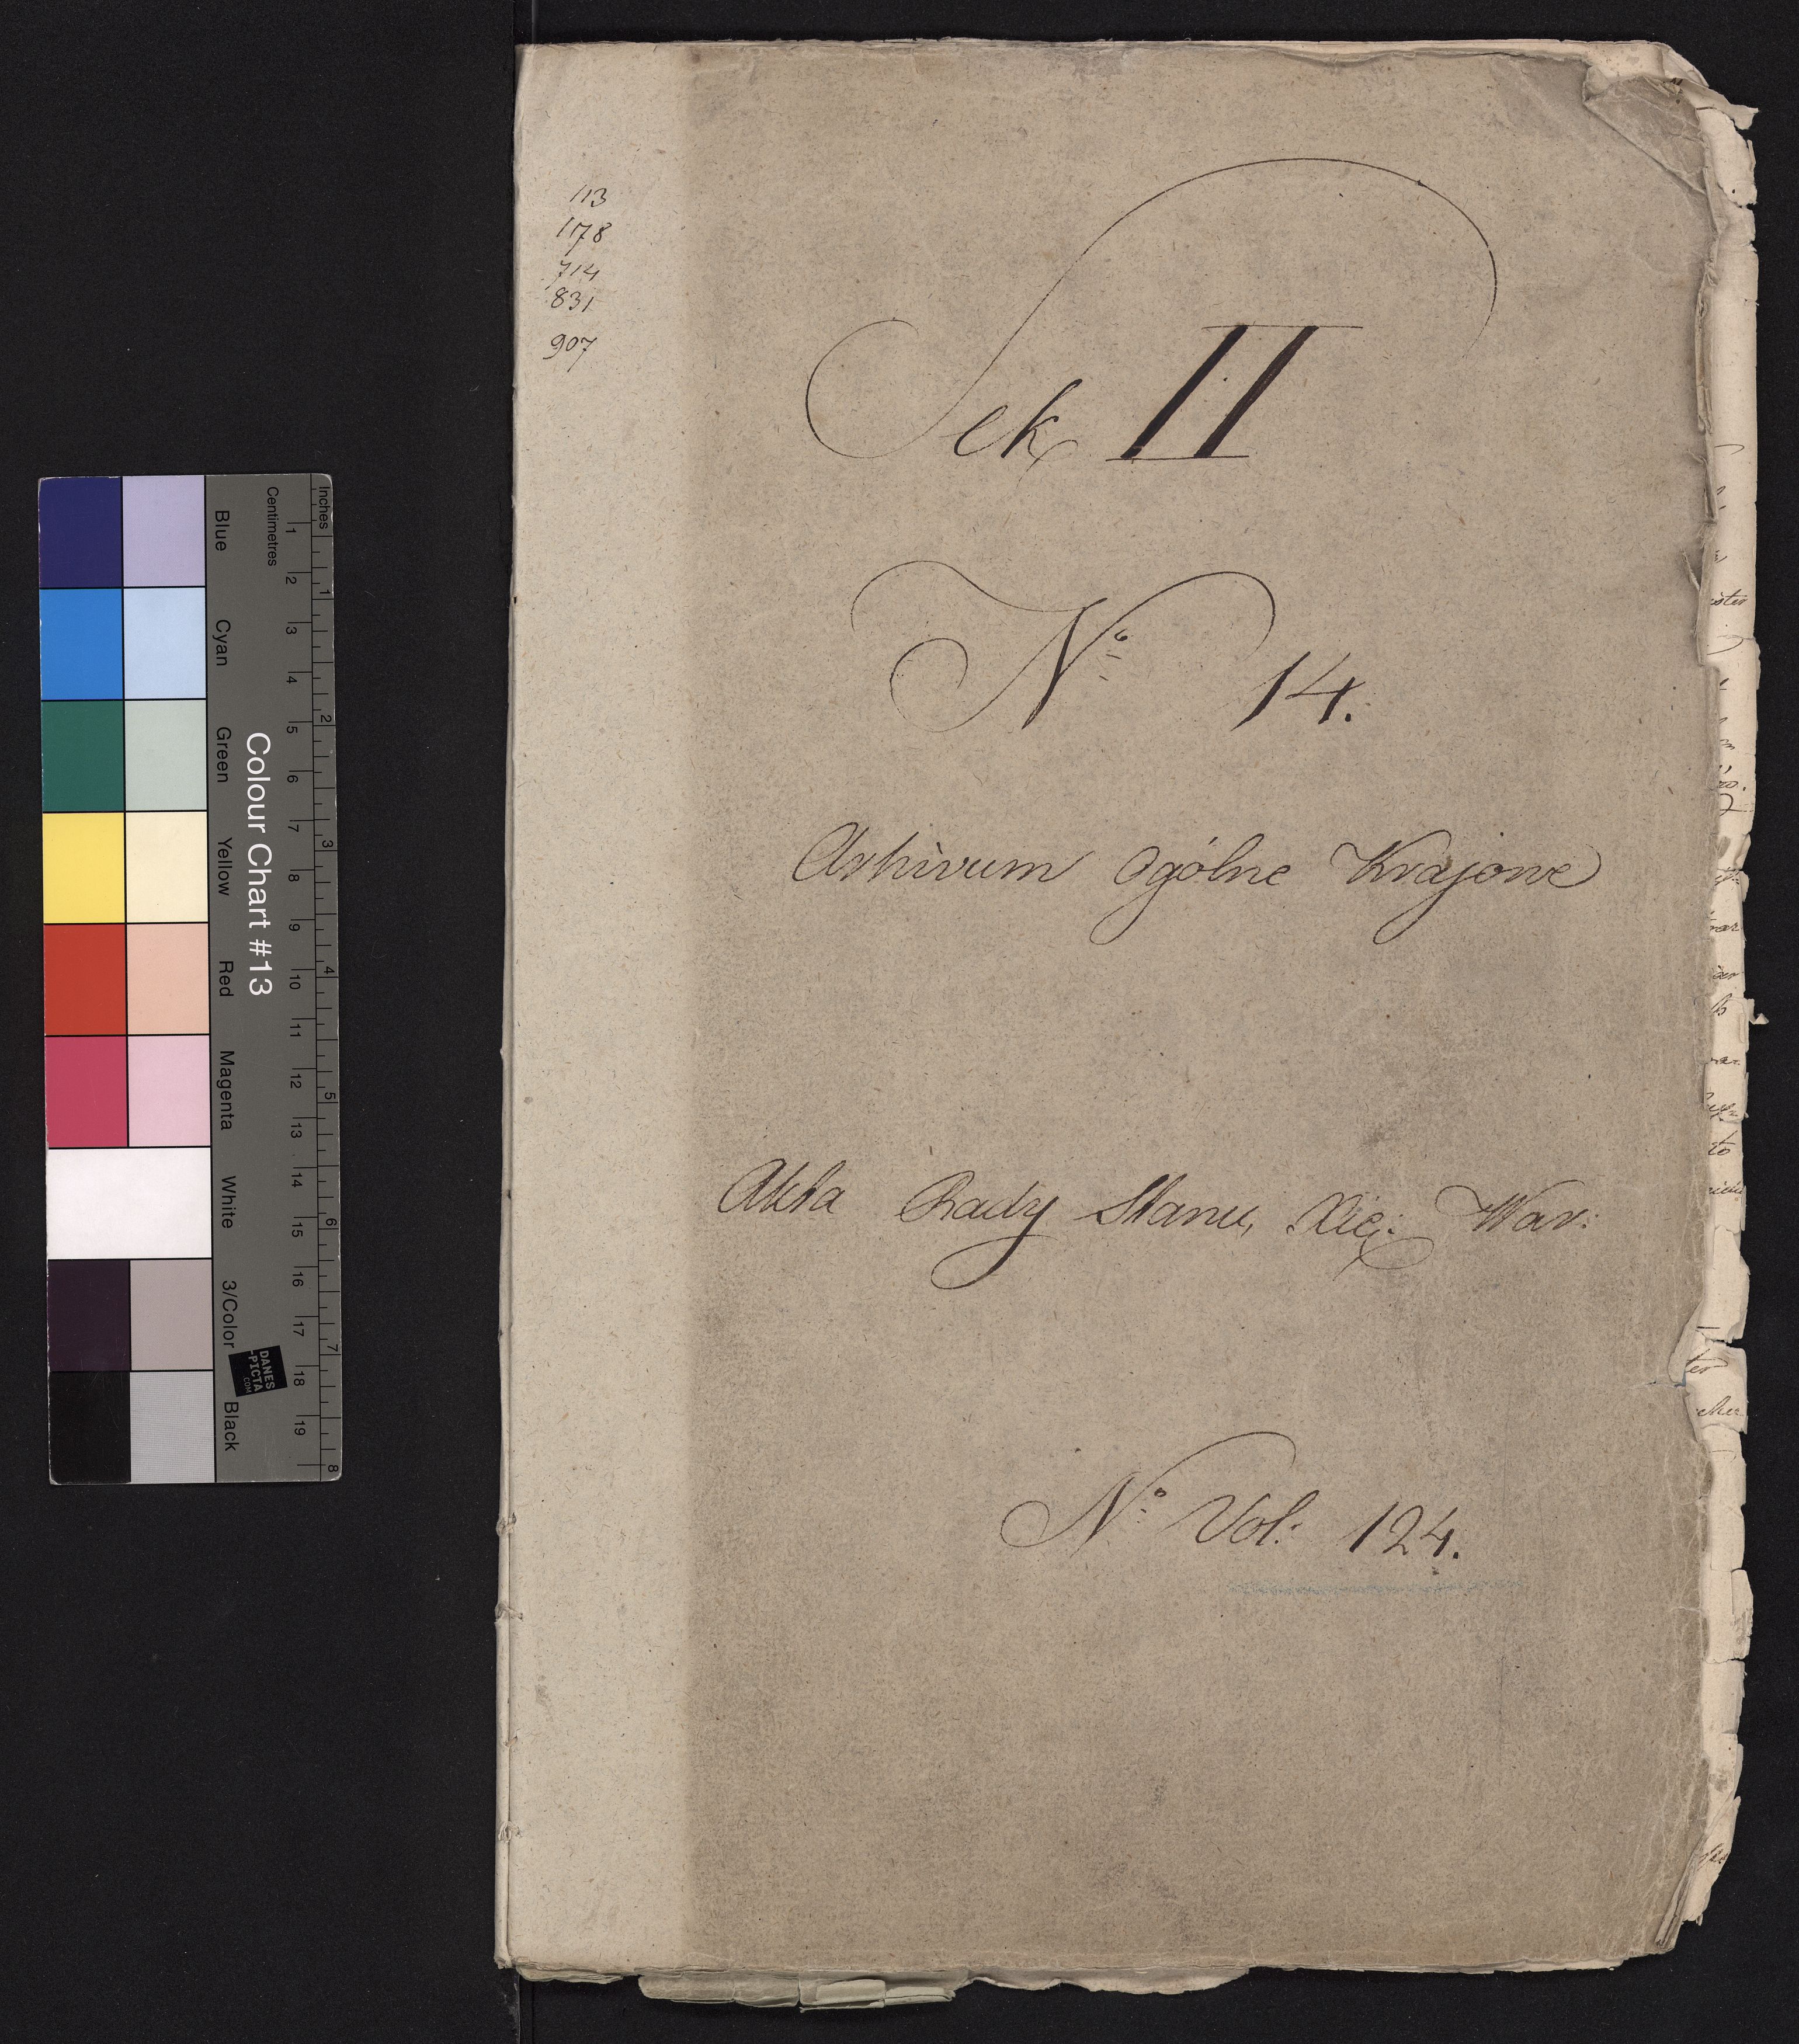 113
178
714
831
907
Sek II
No 14.
Arhivum Ogólne Krajowe
Akta Rady Stanu, Xię: War:
No Vol: 124.
Inches
Centimetres
1 2 3 4 5 6 7 8 9 10 11 12 13 14 15 16 17 18 19
1 2 3 4 5 6 7 8
Colour Chart #13
Blue Cyan Green Yellow Red Magenta White 3/Color Black
DANES
-PICTA
.COM
ister
to
ter